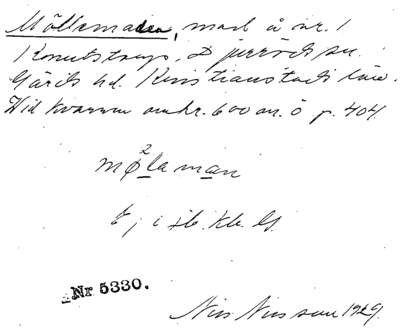 Möllemaden, mad å nr. 1
Knutstorp, Perröds sn.
Gärds hd. Kristianstads län.
Vid kvarnen omkr. 600 m. ö p. 404.
mø²laman
i
Nr 5330.
Nils Nilsson 1929.